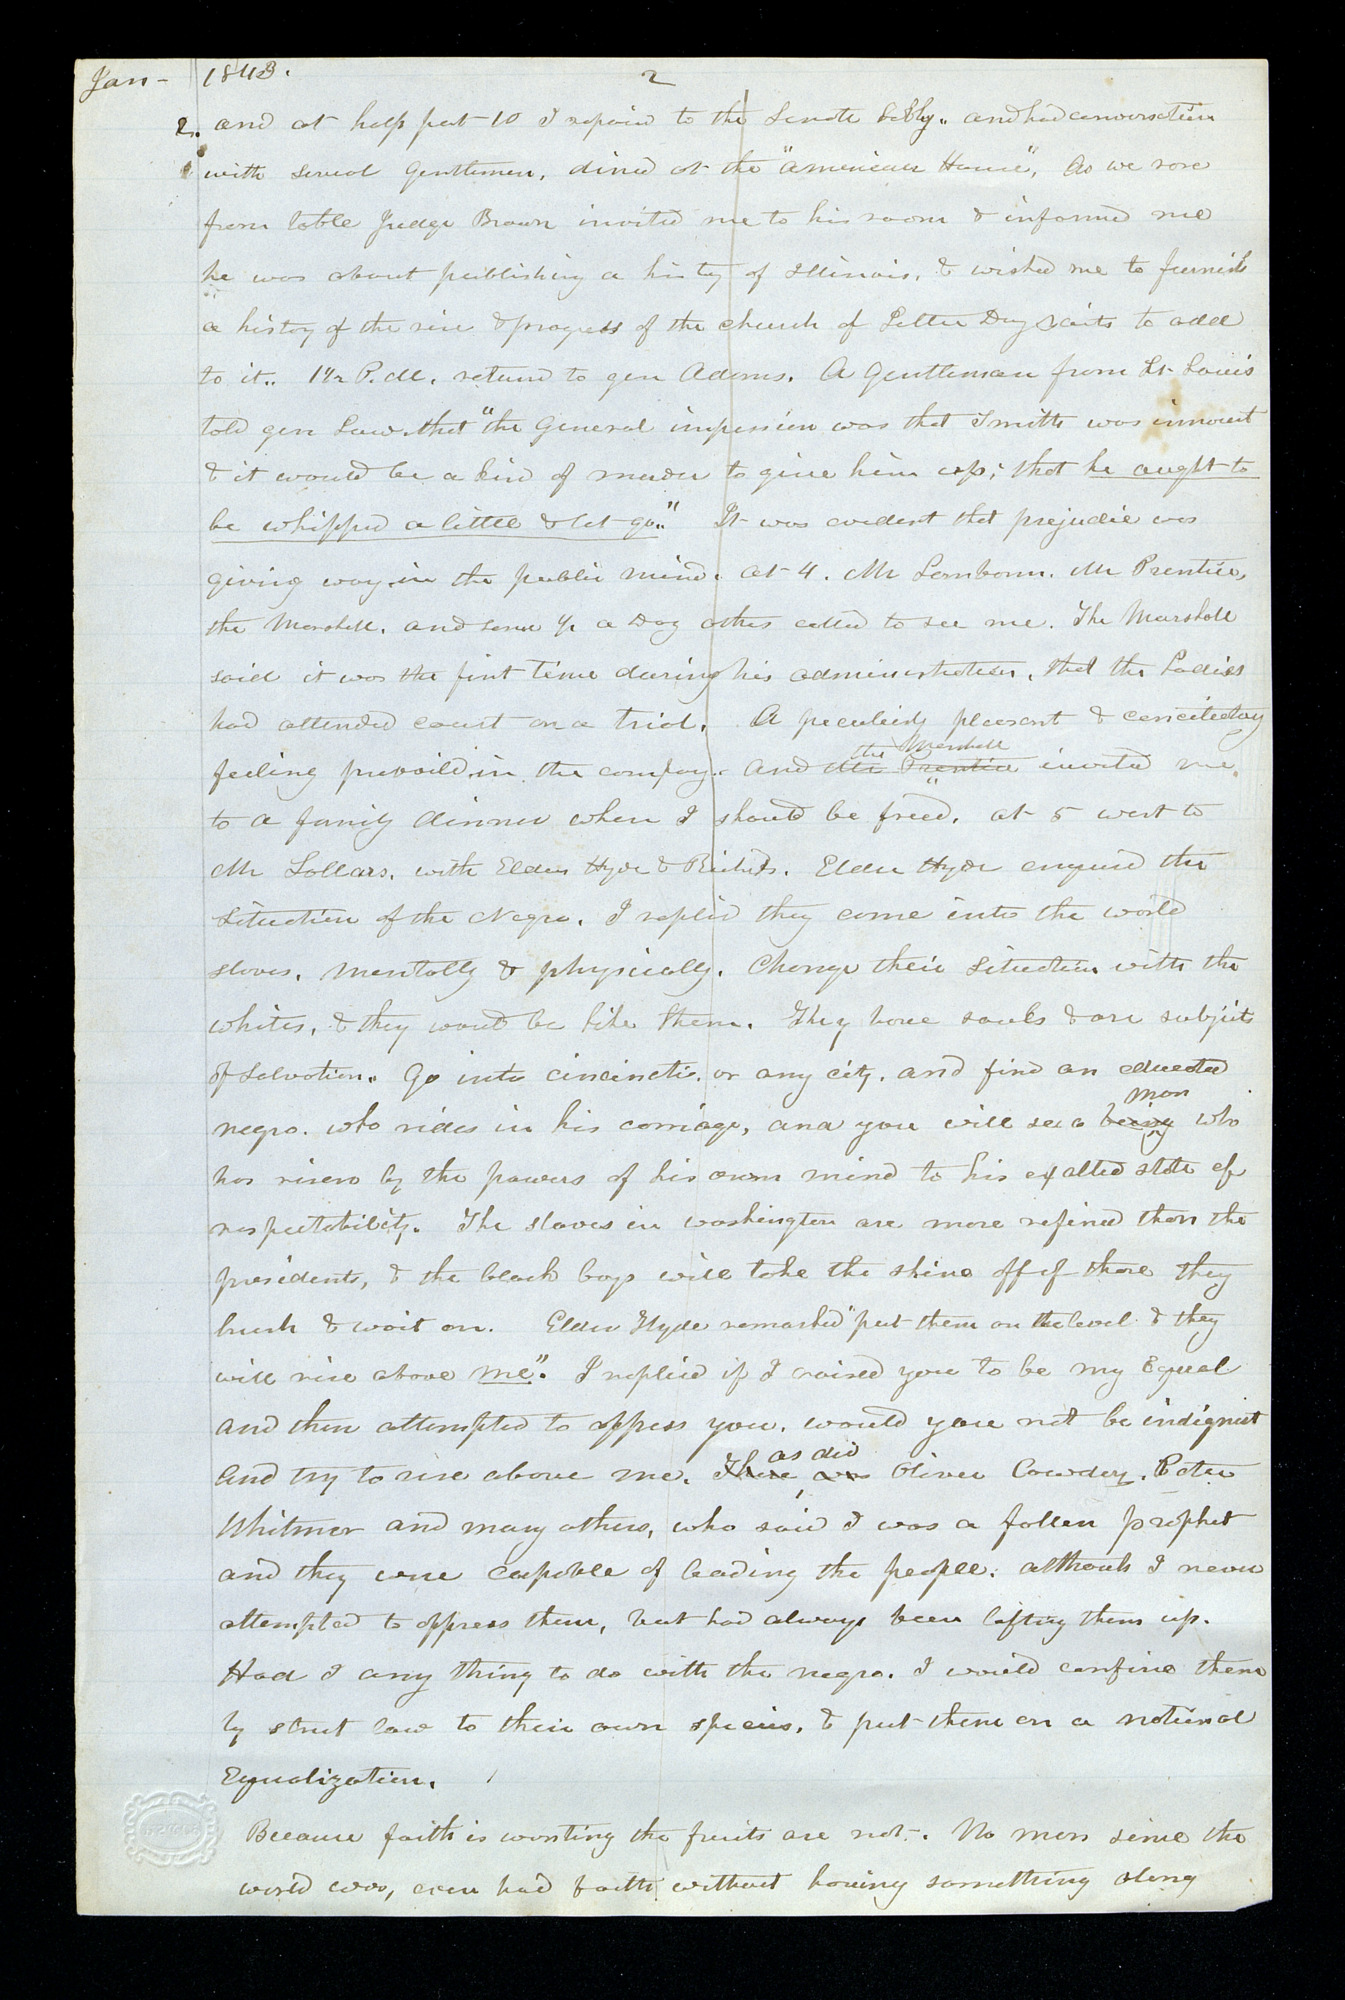 Jan - 1843. 2
2. and at half past 10 I repaird to the Senate Lobby. and had conversation
with several Gentlemen, dined at the "American House", As we rose
from table Judge Brown invited me to his room & informed me
he was about publishing a histy of Illinois, & wished me to furnish
a history of the rise & progress of the church of Latter Day Saints to add
to it. 1½ P.M. returnd to gen Adams. A Gentleman from St- Louis
told gen Law. that "the General impression was that Smith was innocent
& it would be a kind of murder to give him up; that he aught to
be whipped a little & let go." It was evident that prejudice was
giving way in the public mind. at 4. Mr Lamborn. Mr Prentice,
the Marshall. and some ½ a Doz others called to see me. The Marshall
said it was the first time during his administration, that the Ladies
had attended court on a trial. A peculiarly pleasant & conciliatory
feeling prevaild in the company. and Mr Prentice the Marshall invited me
to a family dinner when I should be freed. at 5 went to
Mr Sollars. with Elders Hyde & Richards. Elder Hyde enquired the
situation of the Negro. I replied they come into the world
slaves, mentally & physically. Change their situation with the
whites, & they would be like them. They have souls & are subjects
of salvation. Go into cincinati. or any city. and find an educated
negro. who rides in his carriage, and you will see a being man who
has risen by the powers of his own mind to his exalted state of
respectability. The slaves in washington are more refined than the
presidents, & the black boys will take the shine off of those they
brush & wait on. Elder Hyde remarked "put them on the level & they
will rise above me". I replied if I raised you to be my Equal
and then attempted to oppress you. would you not be indignant
and try to rise above me. There, was as did Oliver Cowdery, Peter
Whitmer and many others, who said I was a fallen prophet
and they were capable of leading the people. although I never
attempted to oppress them, but had always been lifting them up.
Had I any thing to do with the negro. I would confine them
by strict law to their own species, & put them on a national
Equalization.
Because faith is wanting the fruits are not-. No man since the
world was, ever had faith without having something along